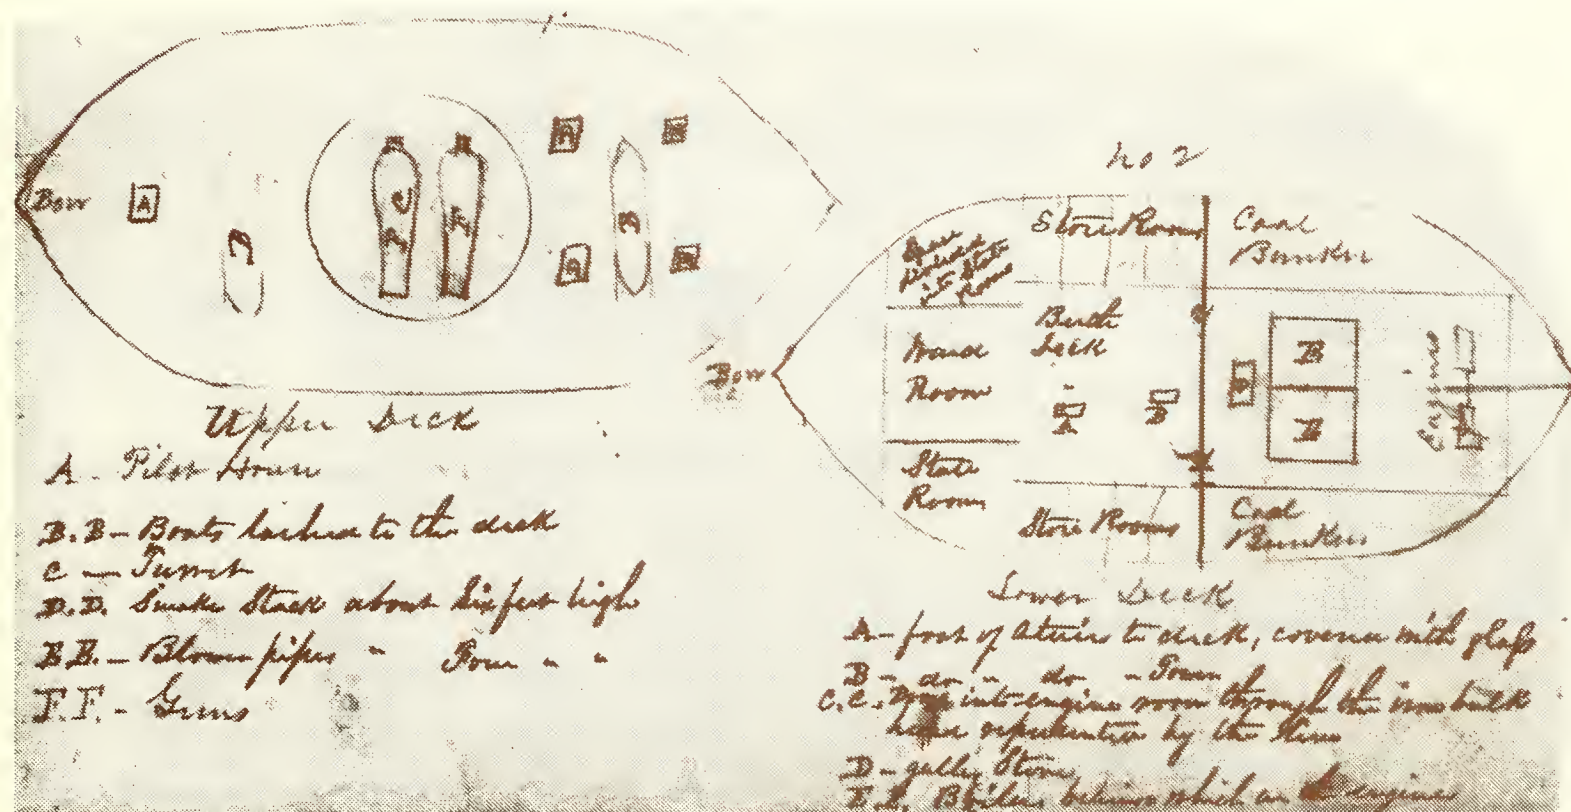 Bow
A
B
C
F
F
B
Upper Deck
A - Pilot House
B.B - Boats lashed to the deck
C - Turret
D.D. Smoke Stack about six feet high
E.E. - Blower pipes " Four " "
F.F. - Guns
No 2
Store Rooms
Coal
Bunker
State
Room
Ward
Room
Berth
Deck
Bow
A
B
D
B
B
Engines
State
Room
Store Rooms
Coal
Bunkers
Lower Deck
A - foot of stairs to deck, covered with glass
B - do " do " Tower
C.C. into engine room through the iron bulk
head represented by the line
D - galley Stove
E.E. Boilers behind which are engines